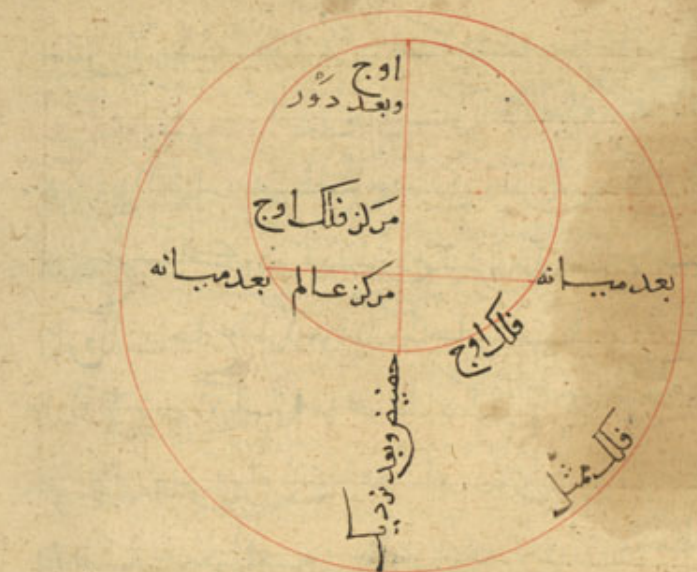 اوج
وبعد دَوْر
مركز فلك اوج
بعد ميانه
مركز عالم
بعد ميانه
فلك اوج
حضيض وبعد نزديك
فلك ممثّل